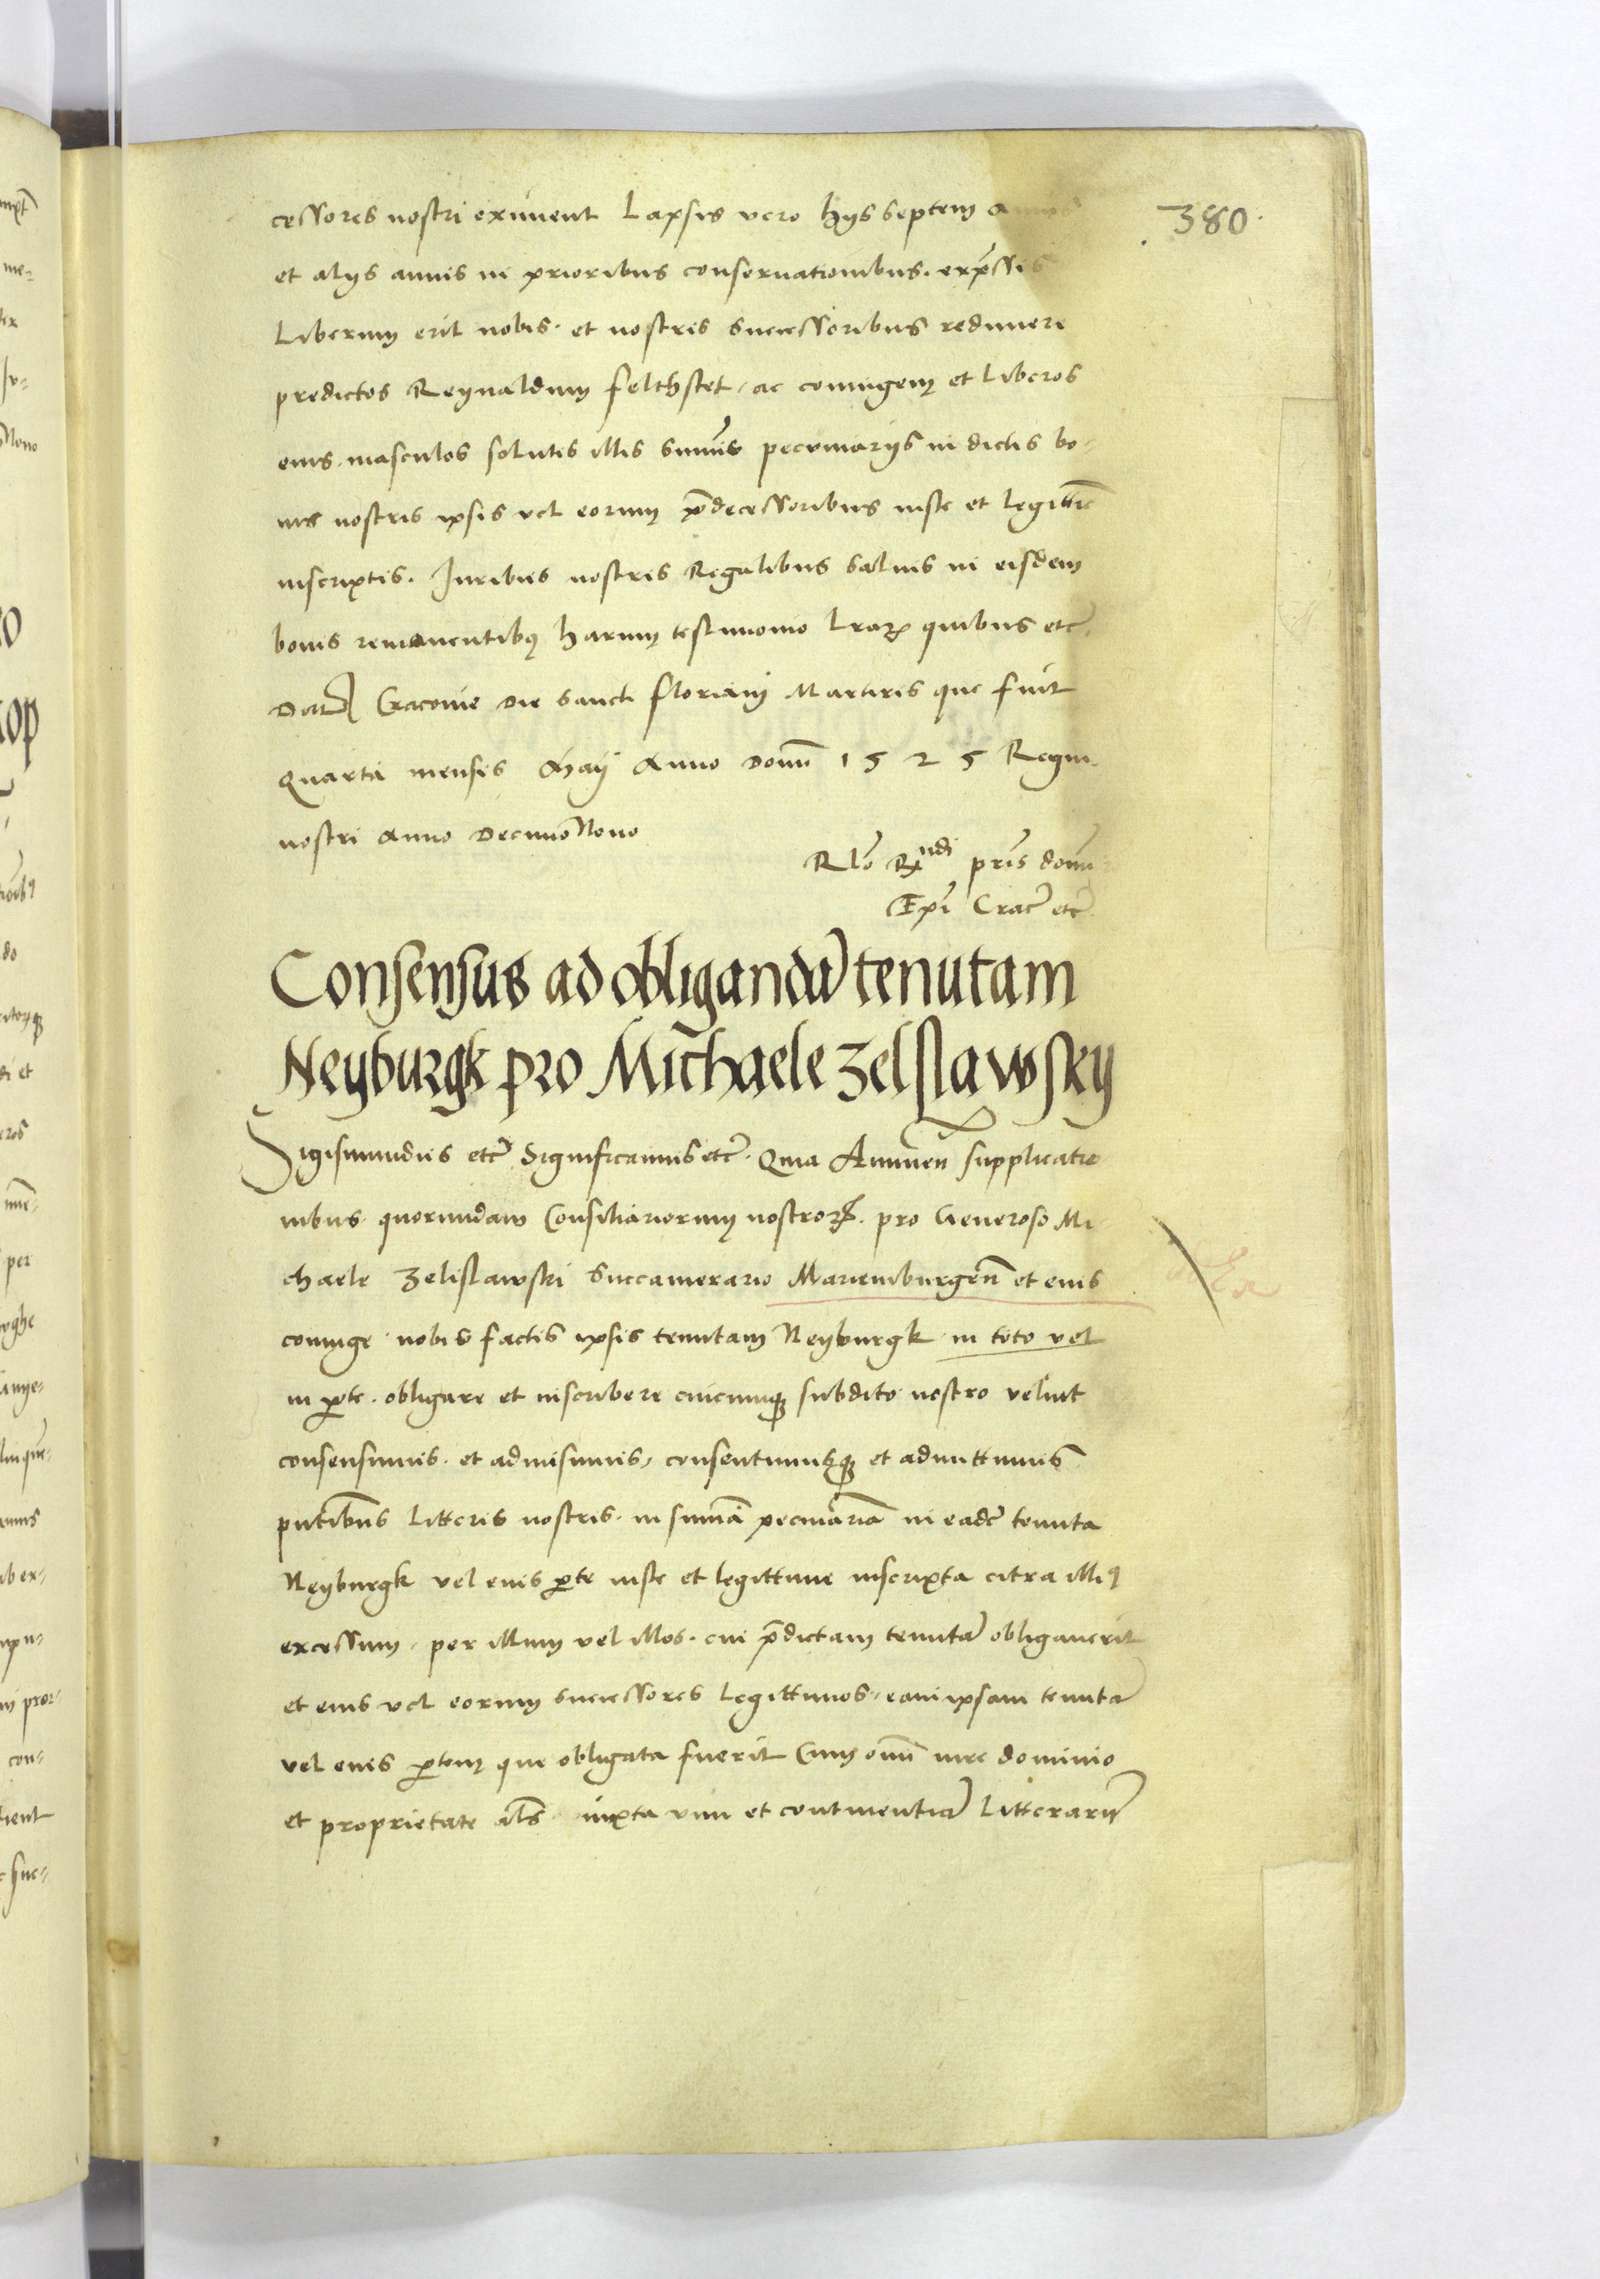 380.
cessores nostri eximent Lapsis vero hijs septem
et alijs annis in prioribus conservationibus. exp̄ssis
Liberum erit nobis. et nostris successoribus redimere
predictos Reynaldum felthstet. ac coniugem et Liberos
eius. masculos solutis illis sum̄is pecuniarijs in dictis bo-
nis nostris ipsis vel eorum p̄decessoribus iuste et legittīe
inscriptis. Iuribus nostris Regalibus salvis in eisdem
bonis remanentibꝫ harum testimonio Lraꝝ quibus etc̄.
Datꝭ Cracovie die Sancti floriani Martiris que fuit
Quarta mensis Maij Anno Domī 1525 Regni
nostri Anno Decimo Nono
Rlō Rndi pr̄is domī
Ep̄i Crac̄ etc̄
Consensus ad obligandā tenutam
Neyburgk pro Michaele Zelslawsky
Sigismundus etc̄ Significamus etc̄. Quia Annuen̄ supplicatio
nibus quorundam Consiliariorum nostroꝝ. pro Generoso Mi
chaele Zelislawski Succamerario Mariemburgen̄ et eius
coniuge nobis factis ipsis tenutam Neyburgk in toto vel
in ꝑte. obligare et inscribere cuicumqꝫ subdito nostro velint
consensimus. et admisimus, consentimusqꝫ et admittimus
pn̄tibus Litteris nostris. in sum̄a pecuniaria in eadē tenuta
Neyburgk vel eius ꝑte iuste et legittime inscripta citra illiꝰ
excessum. per illum vel illos. cui p̄dictam tenutā obligaverit
et eius vel eorum successores Legittimos. eam ipsam tenutā
vel eius ꝑtem que obligata fuerit Cum om̄i iure dominio
et proprietate al̄s iuxta vim et continentiā Litterarū